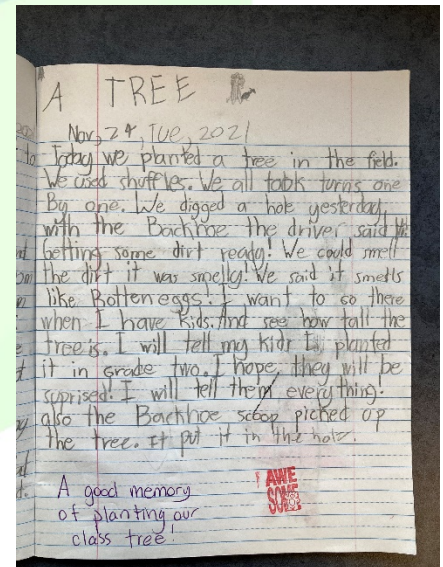 A TREE
Nov, 24, Tue, 2021
Today we planted a tree in the field.
We used shuffles. We all tabk turns one
By one. We digged a hole yesterday,
with the Backhoe the driver said
Getting some dirt ready! We could smell
the dirt it was smelly! We said it smells
like Rotten eggs! I want to go there
when I have kids. And see how tall the
tree is. I will tell my kids I planted
it in grade two. I hope, they will be
suprised! I will tell them everything!
also the Backhoe scoop picked up
the tree. It put it in the hole.
A good memory
of planting our
class tree!
AWE
SOME